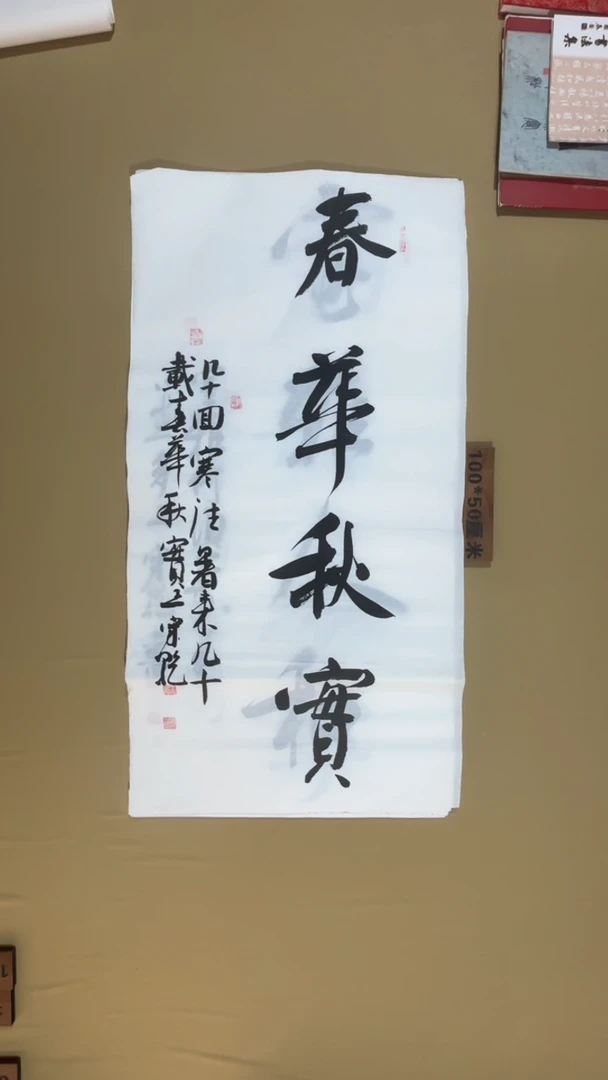 春華秋實
几十回寒往暑来几十
載春華秋實
100*50厘米
書法集